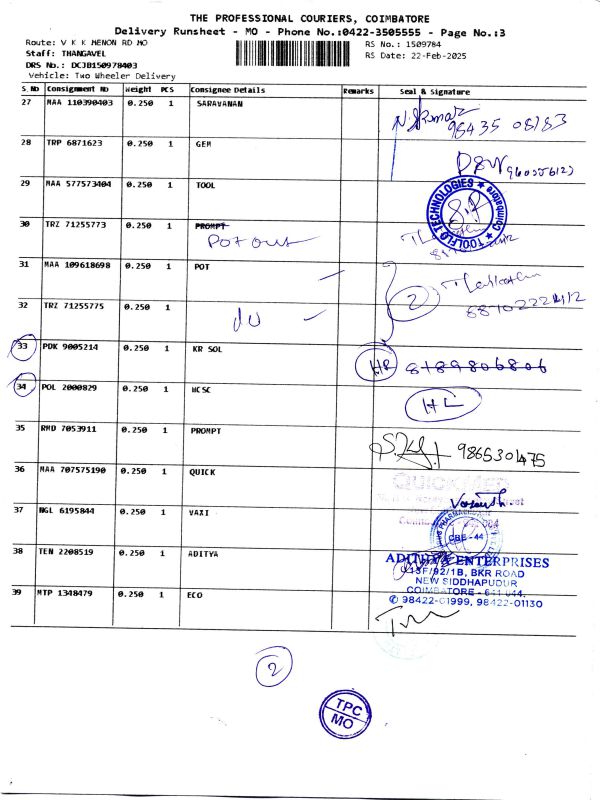 THE PROFESSIONAL COURIERS, COIMBATORE
Delivery Runsheet - MO - Phone No.:0422-3505555 - Page No.:3
Route: V K K MENON RD MO
RS No.: 1509784
Staff: THANGAVEL
RS Date: 22-Feb-2025
DRS No.: DCJB150978403
Vehicle: Two Wheeler Delivery
S.No Consignment No Weight PCS Consignee Details Remarks Seal & Signature
27 MAA 110390403 0.250 1 SARAVANAN
28 TRP 6871623 0.250 1 GEM
29 MAA 577573404 0.250 1 TOOL
TOOLFLO TECHNOLOGIES Coimbatore
30 TRZ 71255773 0.250 1 PROMPT
31 MAA 109618698 0.250 1 POT
2
32 TRZ 71255775 0.250 1
8870222412
33 PDK 9005214 0.250 1 KR SOL
8189806806
34 POL 2000829 0.250 1 WCSC
35 RMD 7053911 0.250 1 PROMPT
9865301475
36 MAA 707575190 0.250 1 QUICK
QUICKMED
37 NGL 6195844 0.250 1 VAXI
CBE - 44
38 TEN 2208519 0.250 1 ADITYA
ADITHYA ENTERPRISES
113F/92/1B, BKR ROAD
NEW SIDDHAPUDUR
COIMBATORE - 641 044.
✆ 98422-01999, 98422-01130
39 MTP 1348479 0.250 1 ECO
2
TPC
MO